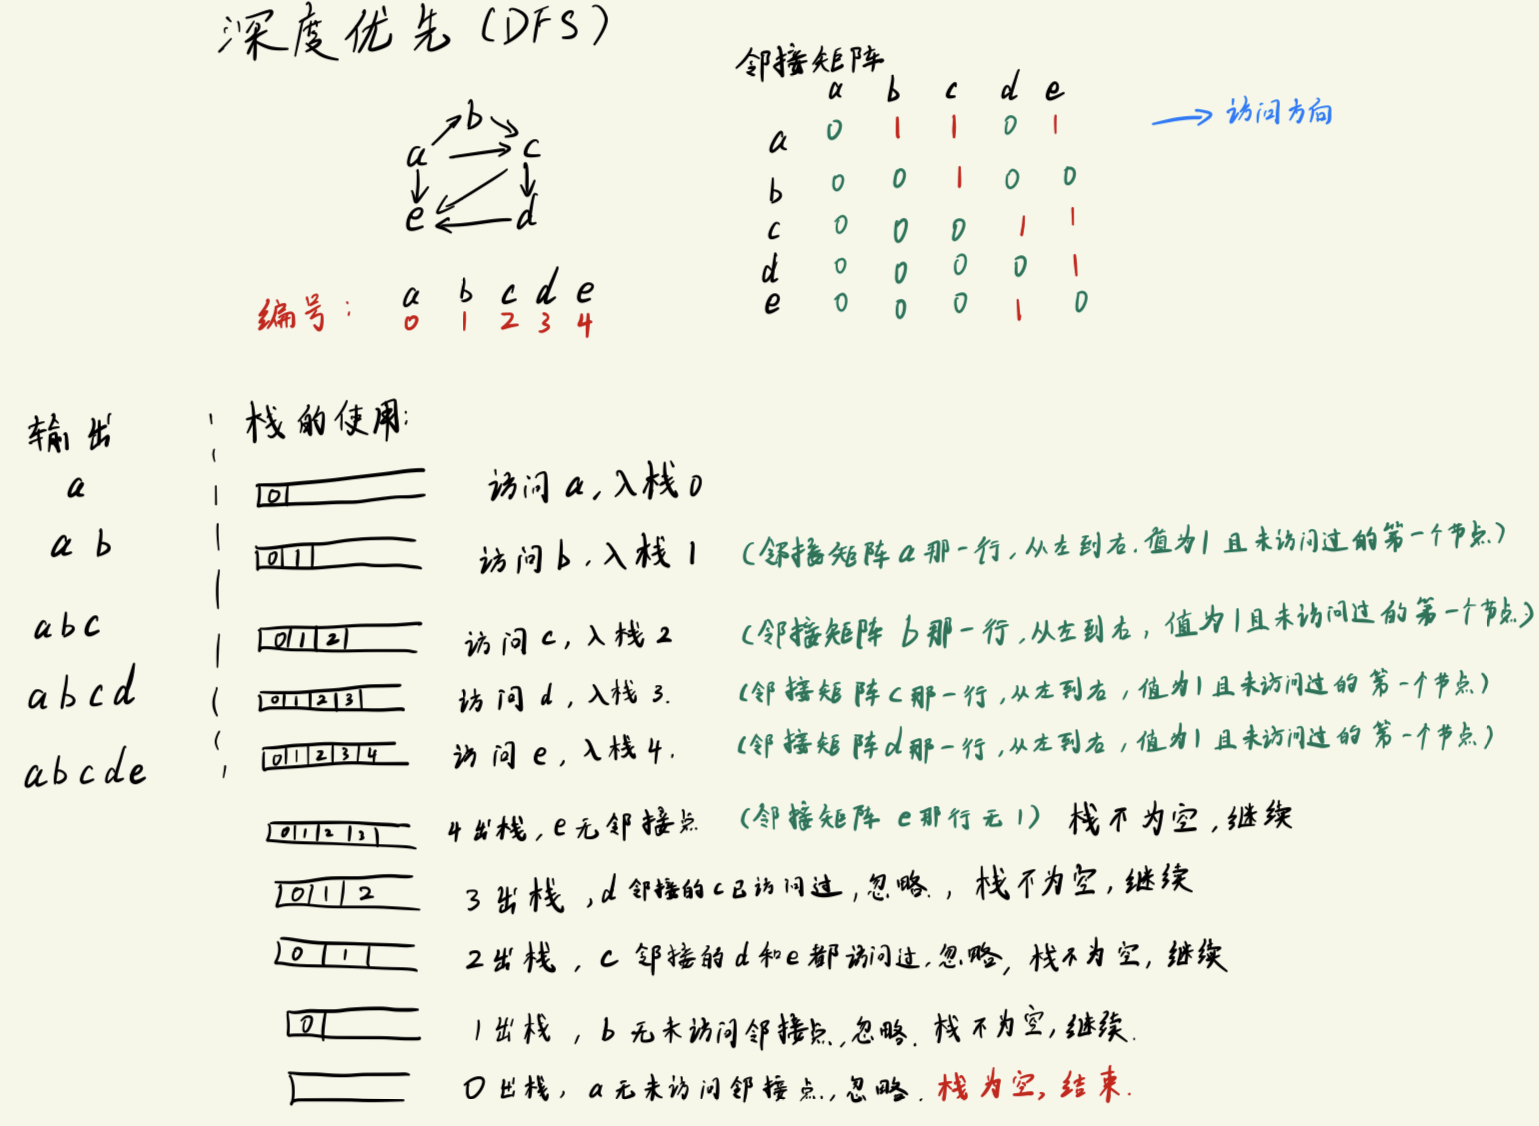 深度优先(DFS)
邻接矩阵
a b c d e
a 0 1 1 0 1
b 0 0 1 0 0
c 0 0 0 1 1
d 0 0 0 0 1
e 0 0 0 1 0
→ 访问方向
b
a c
e d
编号: a b c d e
0 1 2 3 4
输出 栈的使用:
a 0 访问a,入栈0
a b 0 1 访问b,入栈1 (邻接矩阵a那一行,从左到右.值为1且未访问过的第一个节点)
a b c 0 1 2 访问c,入栈2 (邻接矩阵b那一行,从左到右,值为1且未访问过的第一个节点)
a b c d 0 1 2 3 访问d,入栈3. (邻接矩阵c那一行,从左到右,值为1且未访问过的第一个节点)
a b c d e 0 1 2 3 4 访问e,入栈4. (邻接矩阵d那一行,从左到右,值为1且未访问过的第一个节点)
0 1 2 3 4出栈,e无邻接点 (邻接矩阵e那行无1) 栈不为空,继续
0 1 2 3出栈,d邻接的c已访问过,忽略.,栈不为空,继续
0 1 2出栈,c邻接的d和e都访问过,忽略,栈不为空,继续
0 1出栈,b无未访问邻接点,忽略.栈不为空,继续.
0出栈,a无未访问邻接点,忽略.栈为空,结束.